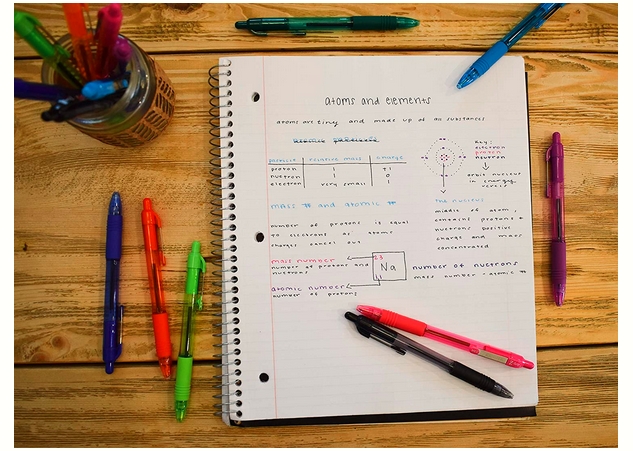 atoms and elements
atoms are tiny and made up of all substances
atomic particals
particle relative mass charge
proton 1 +1
nuetron 1 0
electron very small
key:
electron
proton
nuetron
orbit nucleus
in energy
mass # and atomic #
number of protons is equal
to electrons as atoms
charges cancel out
the nucleus
middle of atom,
contains protons +
nuetrons positive
charge and mass
concentrated
mass number
number of protons and
nuetrons
23
Na
atomic number
number of protons
number of nuetrons
mass number - atomic #